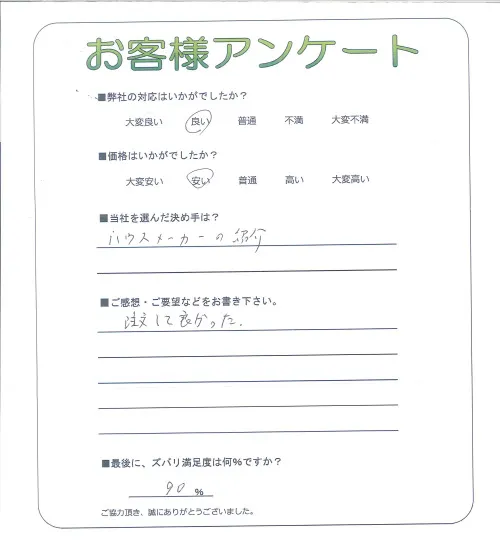 お客様アンケート
■弊社の対応はいかがでしたか?
大変良い 良い 普通 不満 大変不満
■価格はいかがでしたか?
大変安い 安い 普通 高い 大変高い
■当社を選んだ決め手は?
ハウスメーカーの紹介
■ご感想・ご要望などをお書き下さい。
注文して良かった.
■最後に、ズバリ満足度は何%ですか?
90 %
ご協力頂き、誠にありがとうございました。